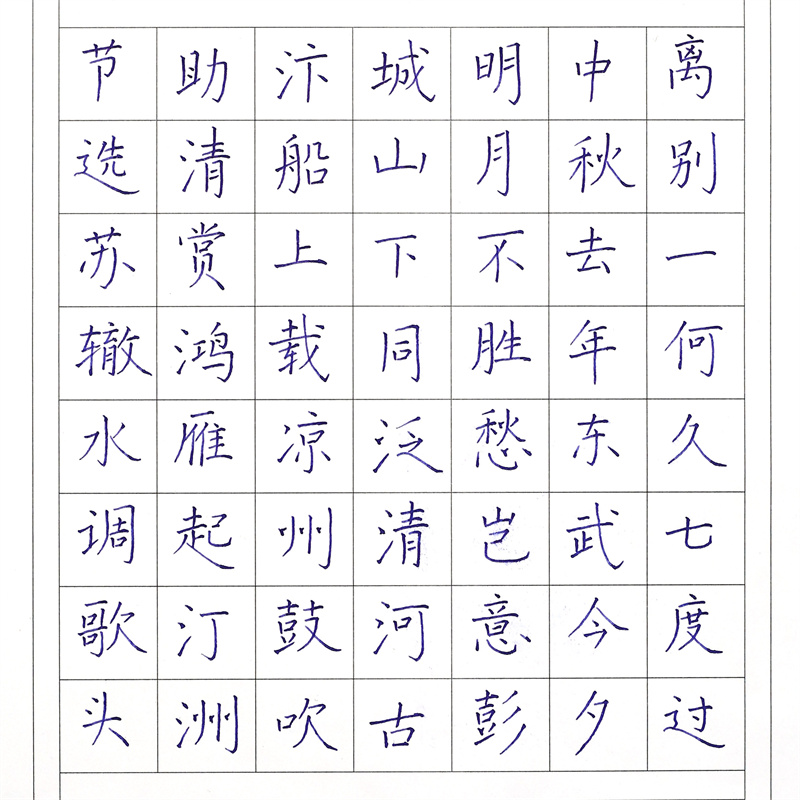 离别一何久七度过
中秋去年东武今夕
明月不胜愁岂意彭
城山下同泛清河古
汴船上载凉州鼓吹
助清赏鸿雁起汀洲
节选苏辙水调歌头